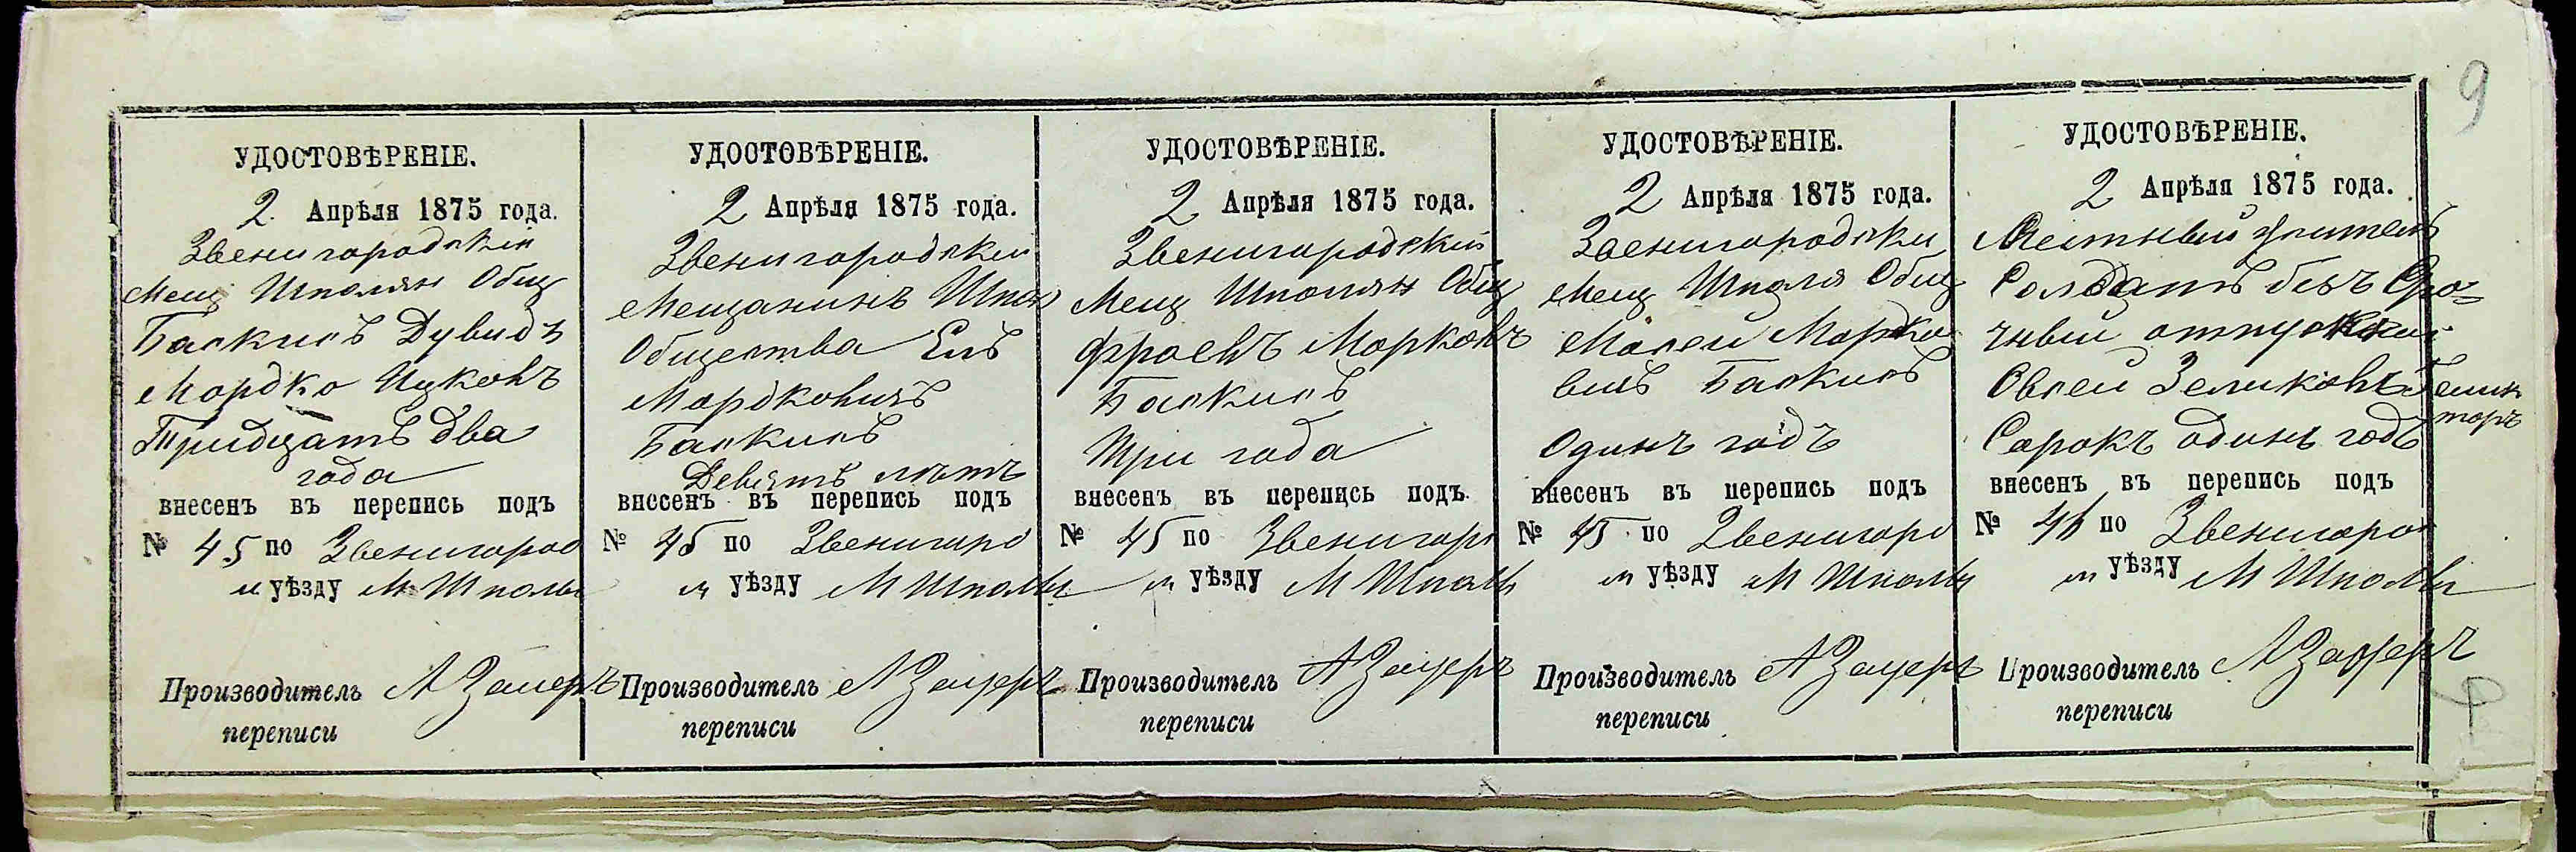 9
УДОСТОВѢРЕНІЕ.
2 Апрѣля 1875 года.
Звенигородскій
Мещ Шполян Общ
Баскинъ Дувидъ
Мордко Ицковъ
Тридцать два
года
внесенъ въ перепись подъ
№ 45 по Звенигород
м уѣзду М Шполы
Производитель А Зацеръ
переписи
УДОСТОВѢРЕНІЕ.
2 Апрѣля 1875 года.
Звенигородски
Мещанинъ Шпол
Общества Елъ
Мордковичъ
Баскинъ
Девять лѣтъ
внесенъ въ перепись подъ
№ 45 по Звенигоро
м уѣзду М Шполы
Производитель А Зацеръ
переписи
УДОСТОВѢРЕНІЕ.
2 Апрѣля 1875 года.
Звенигородский
Мещ Шполян Общ
Фроевъ Морковъ
Баскинъ
Три года
внесенъ въ перепись подъ
№ 45 по Звенигоро
м уѣзду М Шполы
Производитель А Зацеръ
переписи
УДОСТОВѢРЕНІЕ.
2 Апрѣля 1875 года.
Звенигородски
Мещ Шполя Общ
Мосеи Мордко
вичъ Баскинъ
Одинъ годъ
внесенъ въ перепись подъ
№ 45 по Звенигоро
м уѣзду М Шполы
Производитель А Зацеръ
переписи
УДОСТОВѢРЕНІЕ.
2 Апрѣля 1875 года.
Местный Жителъ
Солдатъ безъ Сро-
чный отпускной
Овсей Зеликовъ
Сорокъ одинъ годъ
внесенъ въ перепись подъ
№ 46 по Звенигоро
м уѣзду М Шполы
Производитель А Зацеръ
переписи